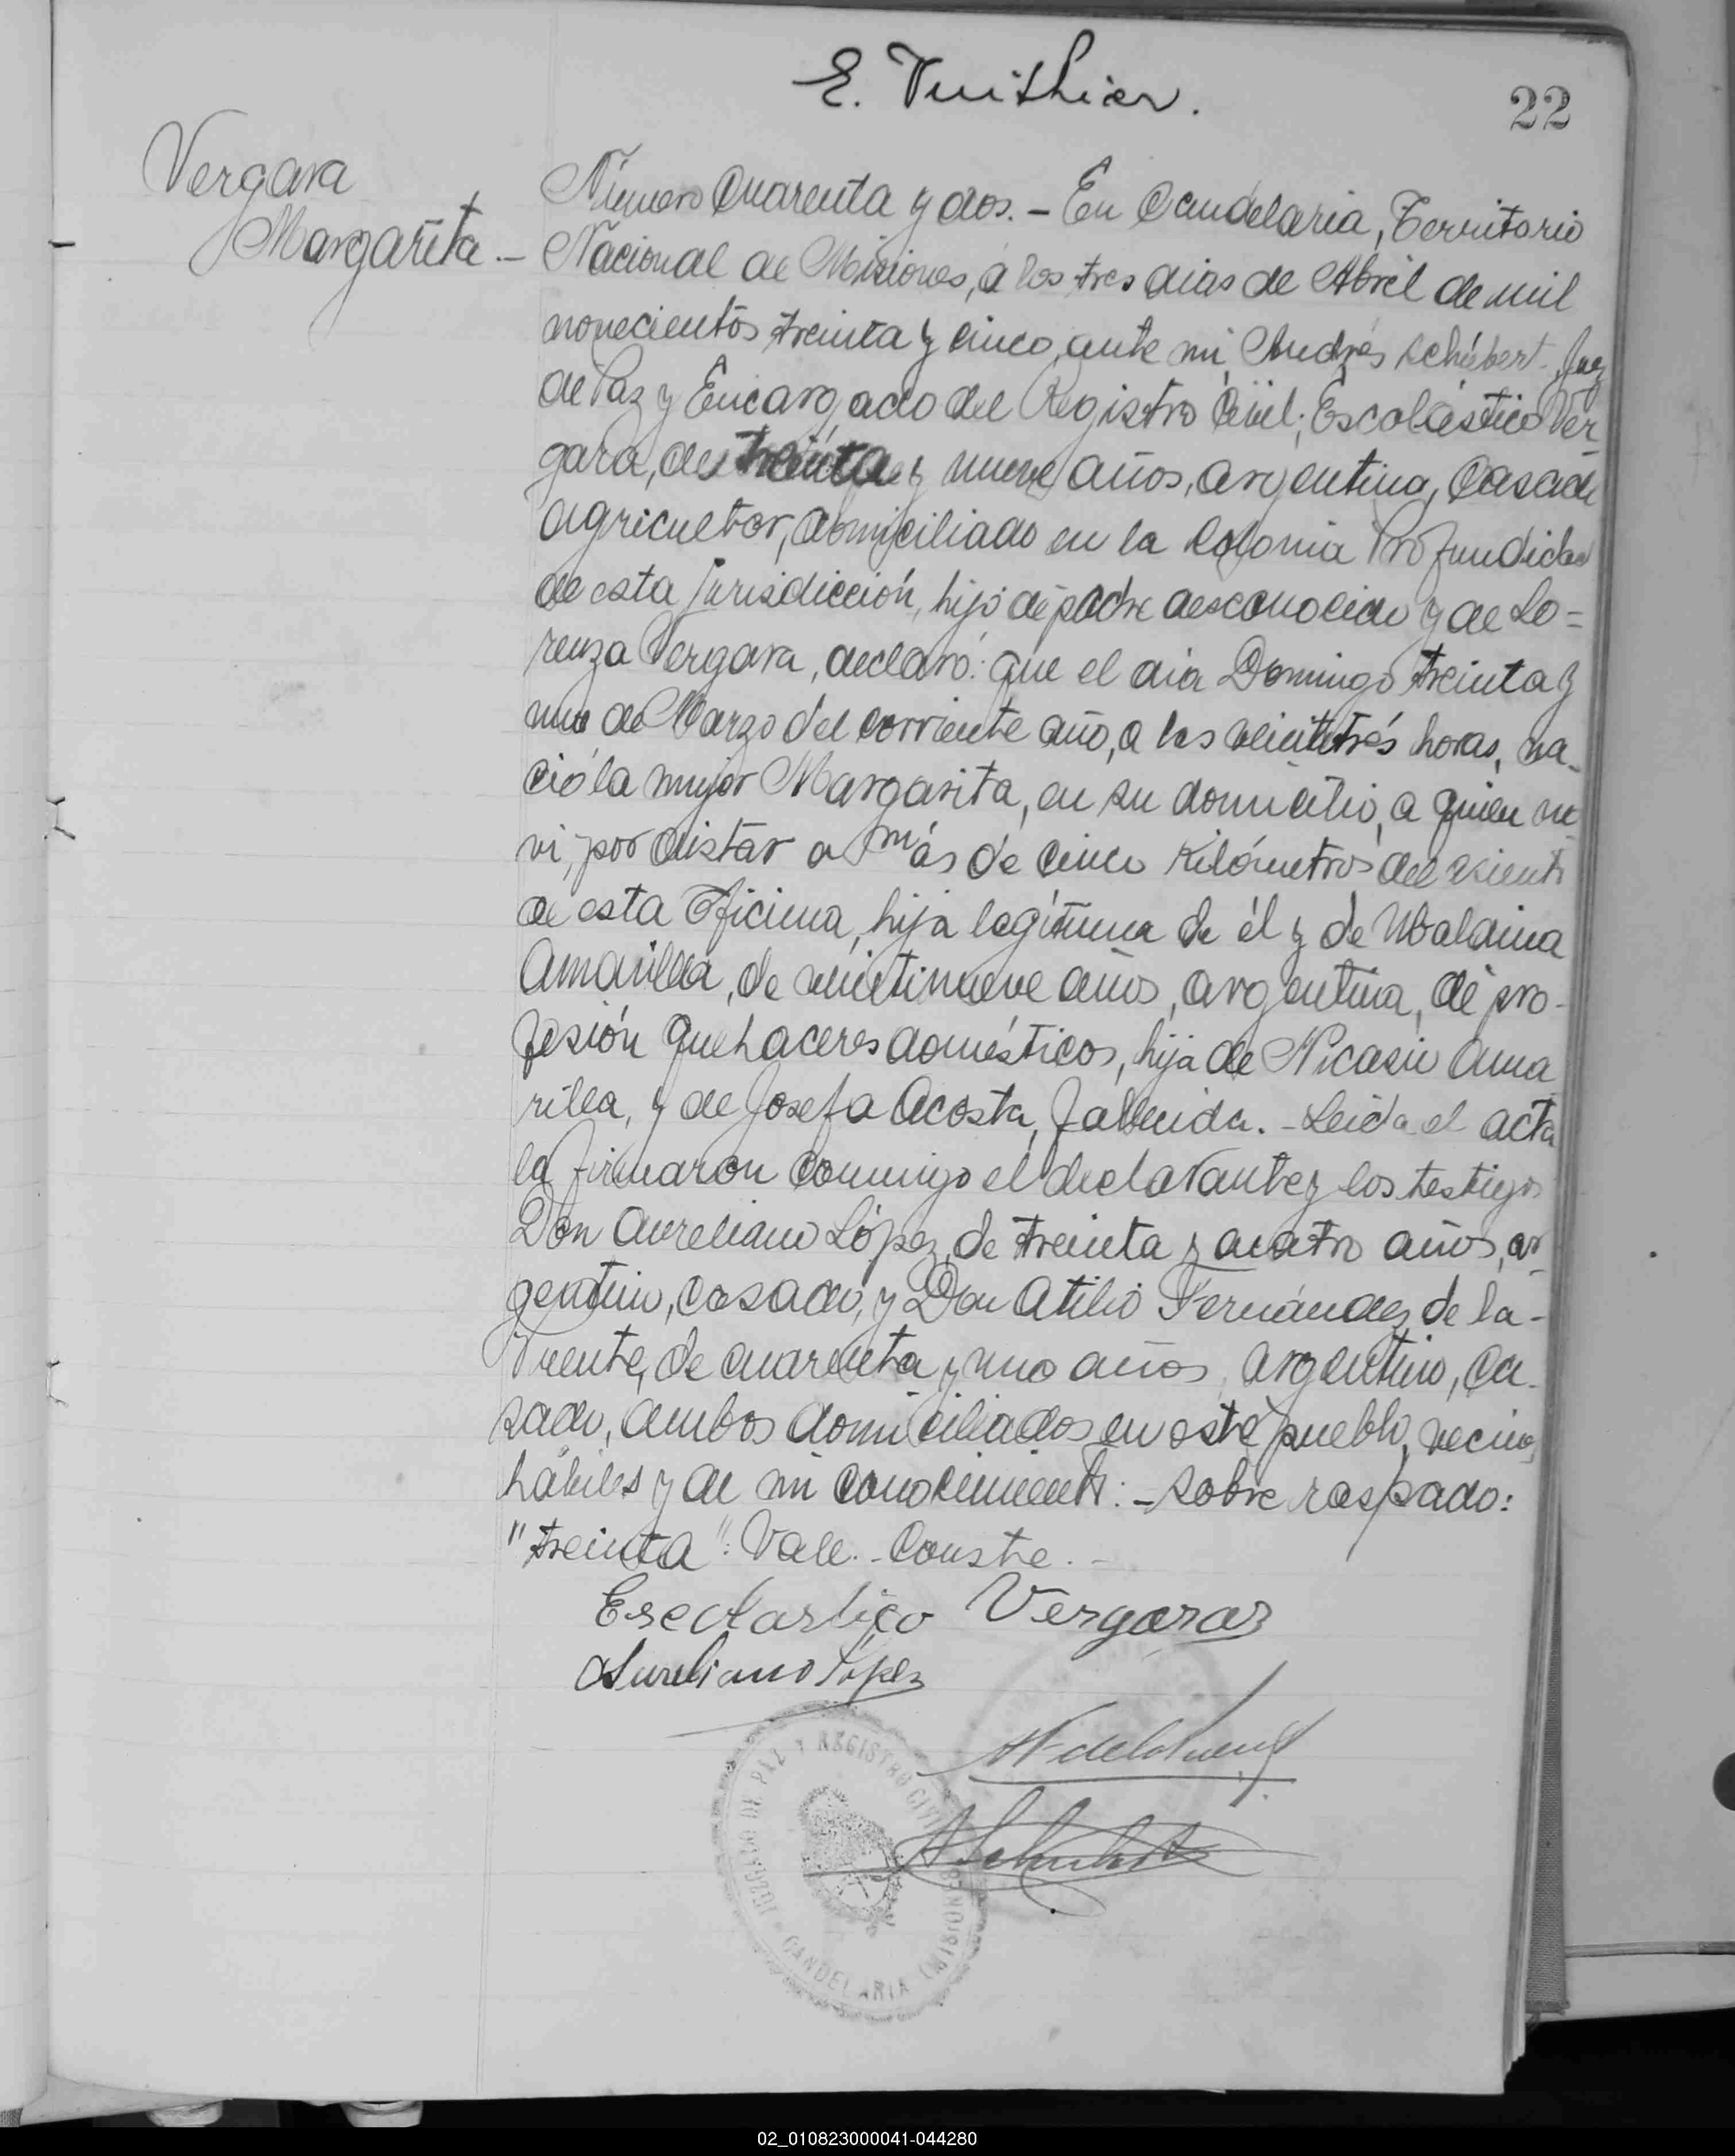 E. Vuithier.
22
Vergara
Margarita.-
Número Cuarenta y dos.- En Candelaria, Territorio
Nacional de Misiones, a los tres dias de Abril de mil
novecientos treinta y cinco, ante mi, Andrés Schubert, Juez
de Paz y Encargado del Registro Civil; Escolástico Ver-
gara, de treinta y nueve años, argentino, Casado
agricultor, domiciliado en la Colonia Profundidad
de esta jurisdicción, hijo de padre desconocido y de Lo=
renza Vergara, declaró: que el dia Domingo treinta y
uno de Marzo del corriente año, a las veintitrés horas, na-
ció la mujer Margarita, en su domicilio, a quien no
vi, por distar a más de cinco Kilómetros del asiento
de esta Oficina, hija legítima de él y de Ubaldina
Amarilla, de veintinueve años, argentina, de pro-
fesión quehaceres domésticos, hija de Nicasio Ama
rilla, y de Josefa Acosta, fallecida.- Leida el acta
la firmaron conmigo el declarante y los testigos
Don Aureliano López, de treinta y cuatro años, ar-
gentino, casado, y Don Atilio Fernández de la-
Vuente, de cuarenta y uno años, argentino, ca-
sado, ambos domiciliados en este pueblo, vecinos,
hábiles y de mi conocimiento:- Sobre raspado:
"treinta": Vale.- Conste.-
Escolastico Vergara
Aureliano López
JUZGADO DE PAZ Y REGISTRO CIVIL
CANDELARIA (MISIONES)
02_010823000041-044280